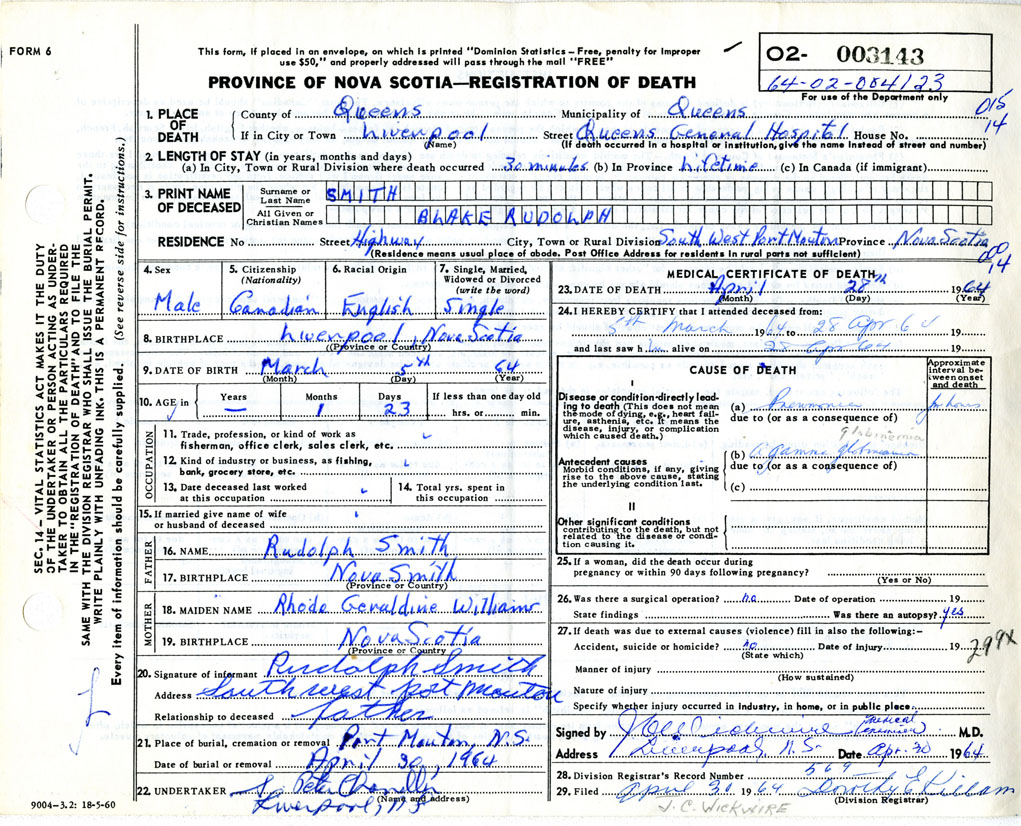 FORM 6
This form, if placed in an envelope, on which is printed "Dominion Statistics – Free, penalty for improper
use $50," and properly addressed will pass through the mail "FREE"
02- 003143
64-02-004123
For use of the Department only
PROVINCE OF NOVA SCOTIA—REGISTRATION OF DEATH
015
14
1. PLACE OF DEATH County of Queens Municipality of Queens
If in City or Town Liverpool (Name) Street Queens General Hospital House No.
(If death occurred in a hospital or institution, give the name instead of street and number)
2. LENGTH OF STAY (in years, months and days)
(a) In City, Town or Rural Division where death occurred 30 minutes (b) In Province Lifetime (c) In Canada (if immigrant)
3. PRINT NAME OF DECEASED Surname or Last Name SMITH
All Given or Christian Names BLAKE RUDOLPH
RESIDENCE No Street Highway City, Town or Rural Division South West Port Mouton Province Nova Scotia
(Residence means usual place of abode. Post Office Address for residents in rural parts not sufficient)
00
14
4. Sex Male
5. Citizenship (Nationality) Canadian
6. Racial Origin English
7. Single, Married, Widowed or Divorced (write the word) Single
8. BIRTHPLACE Liverpool, Nova Scotia
(Province or Country)
9. DATE OF BIRTH March 5th 64
(Month) (Day) (Year)
10. AGE in Years — Months 1 Days 23 If less than one day old hrs. or min.
OCCUPATION
11. Trade, profession, or kind of work as
fisherman, office clerk, sales clerk, etc.
12. Kind of industry or business, as fishing,
bank, grocery store, etc.
13. Date deceased last worked
at this occupation
14. Total yrs. spent in
this occupation
15. If married give name of wife
or husband of deceased
FATHER
16. NAME Rudolph Smith
17. BIRTHPLACE Nova Smith
(Province or Country)
MOTHER
18. MAIDEN NAME Rhoda Geraldine Williams
19. BIRTHPLACE Nova Scotia
(Province or Country
20. Signature of informant Rudolph Smith
Address South west port Mouton
Relationship to deceased father
21. Place of burial, cremation or removal Port Mouton, N.S.
Date of burial or removal April 30, 1964
22. UNDERTAKER Peter Chandler
Liverpool, NS
(Name and address)
9004–3.2: 18-5-60
MEDICAL CERTIFICATE OF DEATH
23. DATE OF DEATH April 28th 1964
(Month) (Day) (Year)
24. I HEREBY CERTIFY that I attended deceased from:
5th March 1964 to 28 Apr 64 19
and last saw him alive on 28 Apr 64 19
CAUSE OF DEATH
Approximate interval between onset and death
I
Disease or condition directly leading to death (This does not mean the mode of dying, e.g., heart failure, asthenia, etc. It means the disease, injury, or complication which caused death.)
(a) Pneumonia hours
due to (or as a consequence of)
globinemia
Antecedent causes
Morbid conditions, if any, giving rise to the above cause, stating the underlying condition last.
(b) A gamma globinemia
due to (or as a consequence of)
(c)
II
Other significant conditions
contributing to the death, but not related to the disease or condition causing it.
25. If a woman, did the death occur during
pregnancy or within 90 days following pregnancy?
(Yes or No)
26. Was there a surgical operation? no Date of operation 19
State findings Was there an autopsy? yes
27. If death was due to external causes (violence) fill in also the following:–
Accident, suicide or homicide? no Date of injury 19
(State which)
299X
Manner of injury
(How sustained)
Nature of injury
Specify whether injury occurred in industry, in home, or in public place
Signed by J C Wickwire Medical Examiner M.D.
Address Liverpool, N.S. Date Apr. 30 1964
28. Division Registrar's Record Number 569
29. Filed April 30 1964 Dorothy E Killam
(Division Registrar)
J.C. WICKWIRE
SEC. 14 – VITAL STATISTICS ACT MAKES IT THE DUTY
OF THE UNDERTAKER OR PERSON ACTING AS UNDER-
TAKER TO OBTAIN ALL THE PARTICULARS REQUIRED
IN THE "REGISTRATION OF DEATH" AND TO FILE THE
SAME WITH THE DIVISION REGISTRAR WHO SHALL ISSUE THE BURIAL PERMIT.
WRITE PLAINLY WITH UNFADING INK. THIS IS A PERMANENT RECORD.
Every item of information should be carefully supplied. (See reverse side for instructions.)